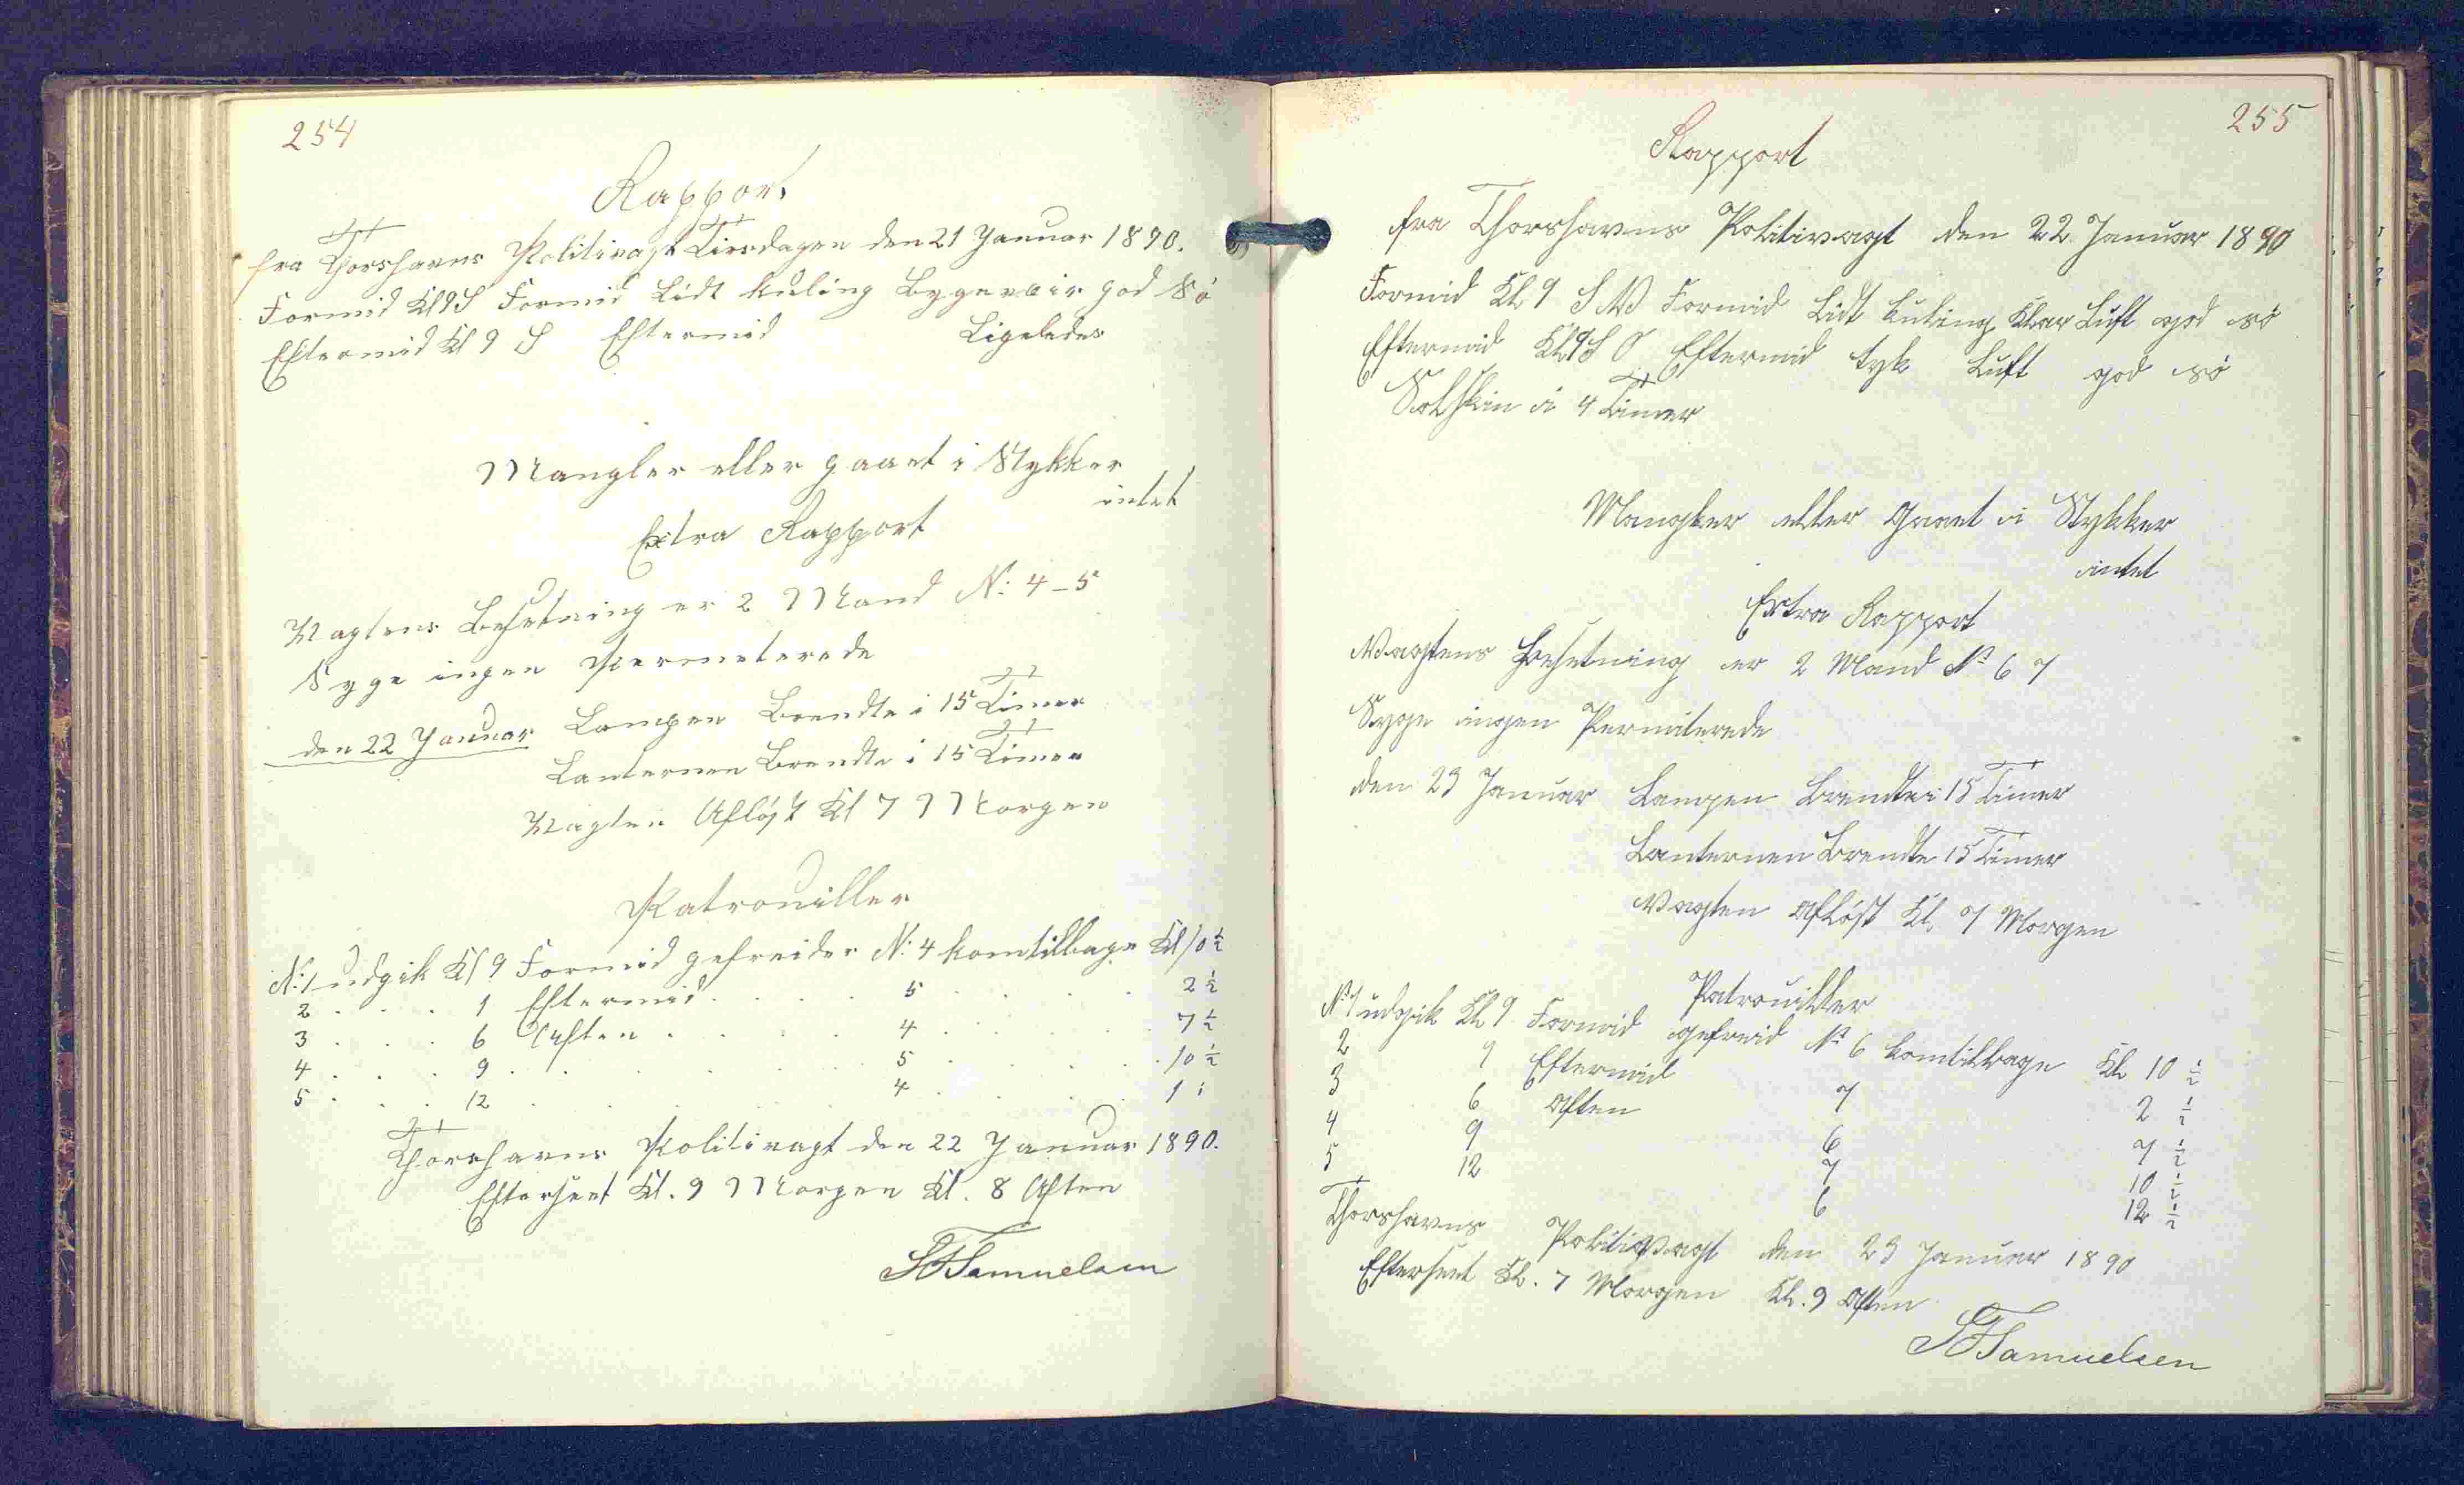 254
Rapport
fra Thorshavns Politivagt Tirsdagen den 21 Januar 1890.
Formid Kl 9 S Formid Lidt kuling Bygeveir god Sö
Eftermid Kl 9 S Eftermid Ligeledes
Mangler eller gaaet i Stykker
intet
Extra Rapport
Vagtens Besetning er 2 Mand N: 4-5
Syge ingen Permeterede
den 22 Januar Lampen Brendte i 15 Timer
Lanternen Brendte i 15 Timer
Vagten Aflöst Kl 7 Morgen
Patrouiller
N: 1 udgik Kl 9 Formid gefreider N: 4 kom tilbage Kl 10 1/2
2 . . . 1 Eftermid . . . . 5 . . . . 2 1/2
3 . . . 6 Aften . . . . 4 . . . . 7 1/2
4 . . . 9 . . . . 5 . . . . 10 1/2
5 . . . 12 . . . . 4 . . . . 1 :
Thorshavns Politivagt den 22 Januar 1890.
Efterseet Kl. 9 Morgen Kl. 8 Aften
Samuelsen
255
Rapport
fra Thorshavns Politivagt den 22 Januar 1890
Formid Kl 9 S V Formid Lidt kuling Klar Luft god sö
Eftermid Kl 9 S O Eftermid tyk Luft god sö
Solskin i 4 Timer
Mangler eller Gaaet i Stykker
intet
Extra Rapport
Vagtens Besetning er 2 Mand No 6 7
Syge ingen Permiterede
den 23 Januar Lampen Brendte i 15 Timer
Lanternen Brendte 15 Timer
Vagten aflöst Kl 7 Morgen
Patrouiller
No 1 udgik Kl 9 Formid gefreid No 6 kom tilbage Kl 10 1/2
2 1 Eftermid 7 2 1/2
3 6 aften 6 7 1/2
4 9 7 10 1/2
5 12 6 12 1/2
Thorshavns Politivagt den 23 Januar 1890
Efterseet Kl. 7 Morgen Kl. 9 Aften
Samuelsen